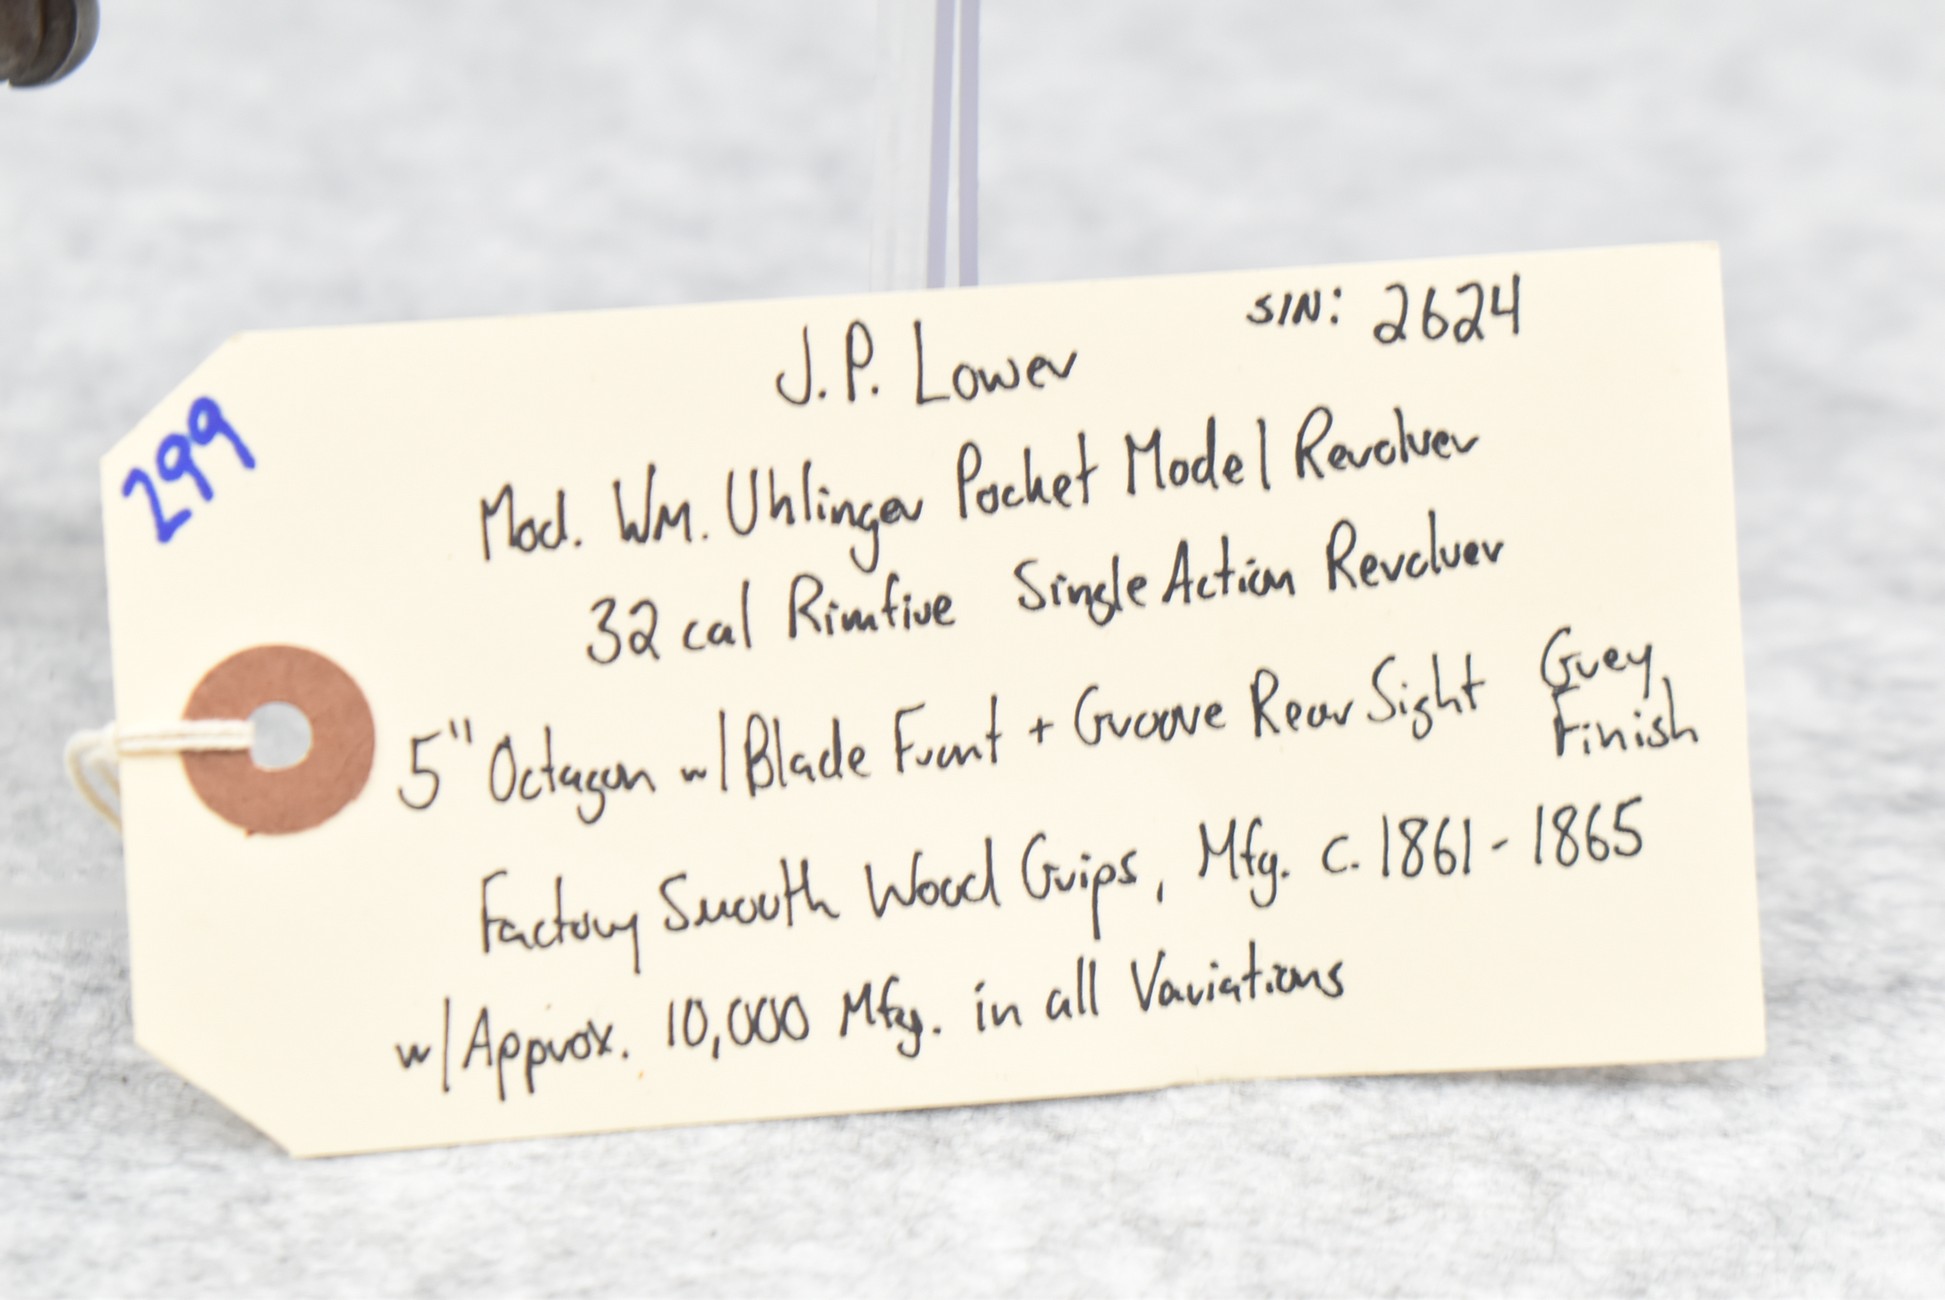 299
J.P. Lower S/N: 2624
Mod. Wm. Uhlinger Pocket Model Revolver
32 cal Rimfire Single Action Revolver
5" Octagon w/ Blade Front + Groove Rear Sight Grey Finish
Factory Smooth Wood Grips, Mfg. c. 1861-1865
w/ Approx. 10,000 Mfg. in all Variations